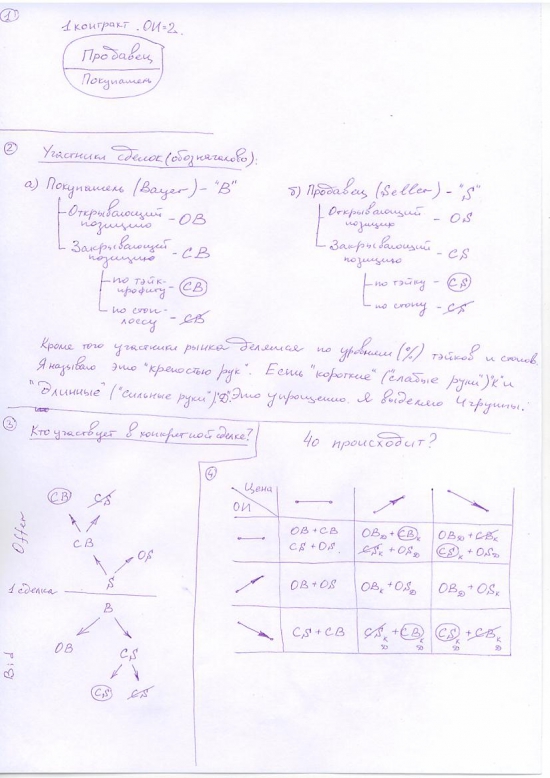 ①
1 контракт. ОИ=2.
Продавец
Покупатель
② Участники сделок (обозначалово):
а) Покупатель (Bayer) - "B"
Открывающий позицию - OB
Закрывающий позицию - CB
по тэйк-профиту - CB
по стоп-лоссу - CB
б) Продавец (Seller) - "S"
Открывающий позицию - OS
Закрывающий позицию - CS
по тэйку - CS
по стопу - CS
Кроме того участники рынка делятся по уровням (%) тэйков и стопов.
Я называю это "крепостью рук". Есть "короткие" ("слабые руки") "К" и
"Длинные" ("сильные руки") "Д". Это упрощенно. Я выделяю 4 группы.
③ Кто участвует в конкретной сделке?
Offer
CB CS
CB
OS
S
1 сделка
B
OB
CS
CS CS
Bid
Чо происходит?
④
Цена
ОИ
OB + CB
CS + OS
OBД + CBК
CSК + OSД
OBД + CBК
CSК + OSД
OB + OS
OBК + OSД
OBД + OSК
CS + CB
CSК + CBК
Д Д
CSК + CBК
Д Д